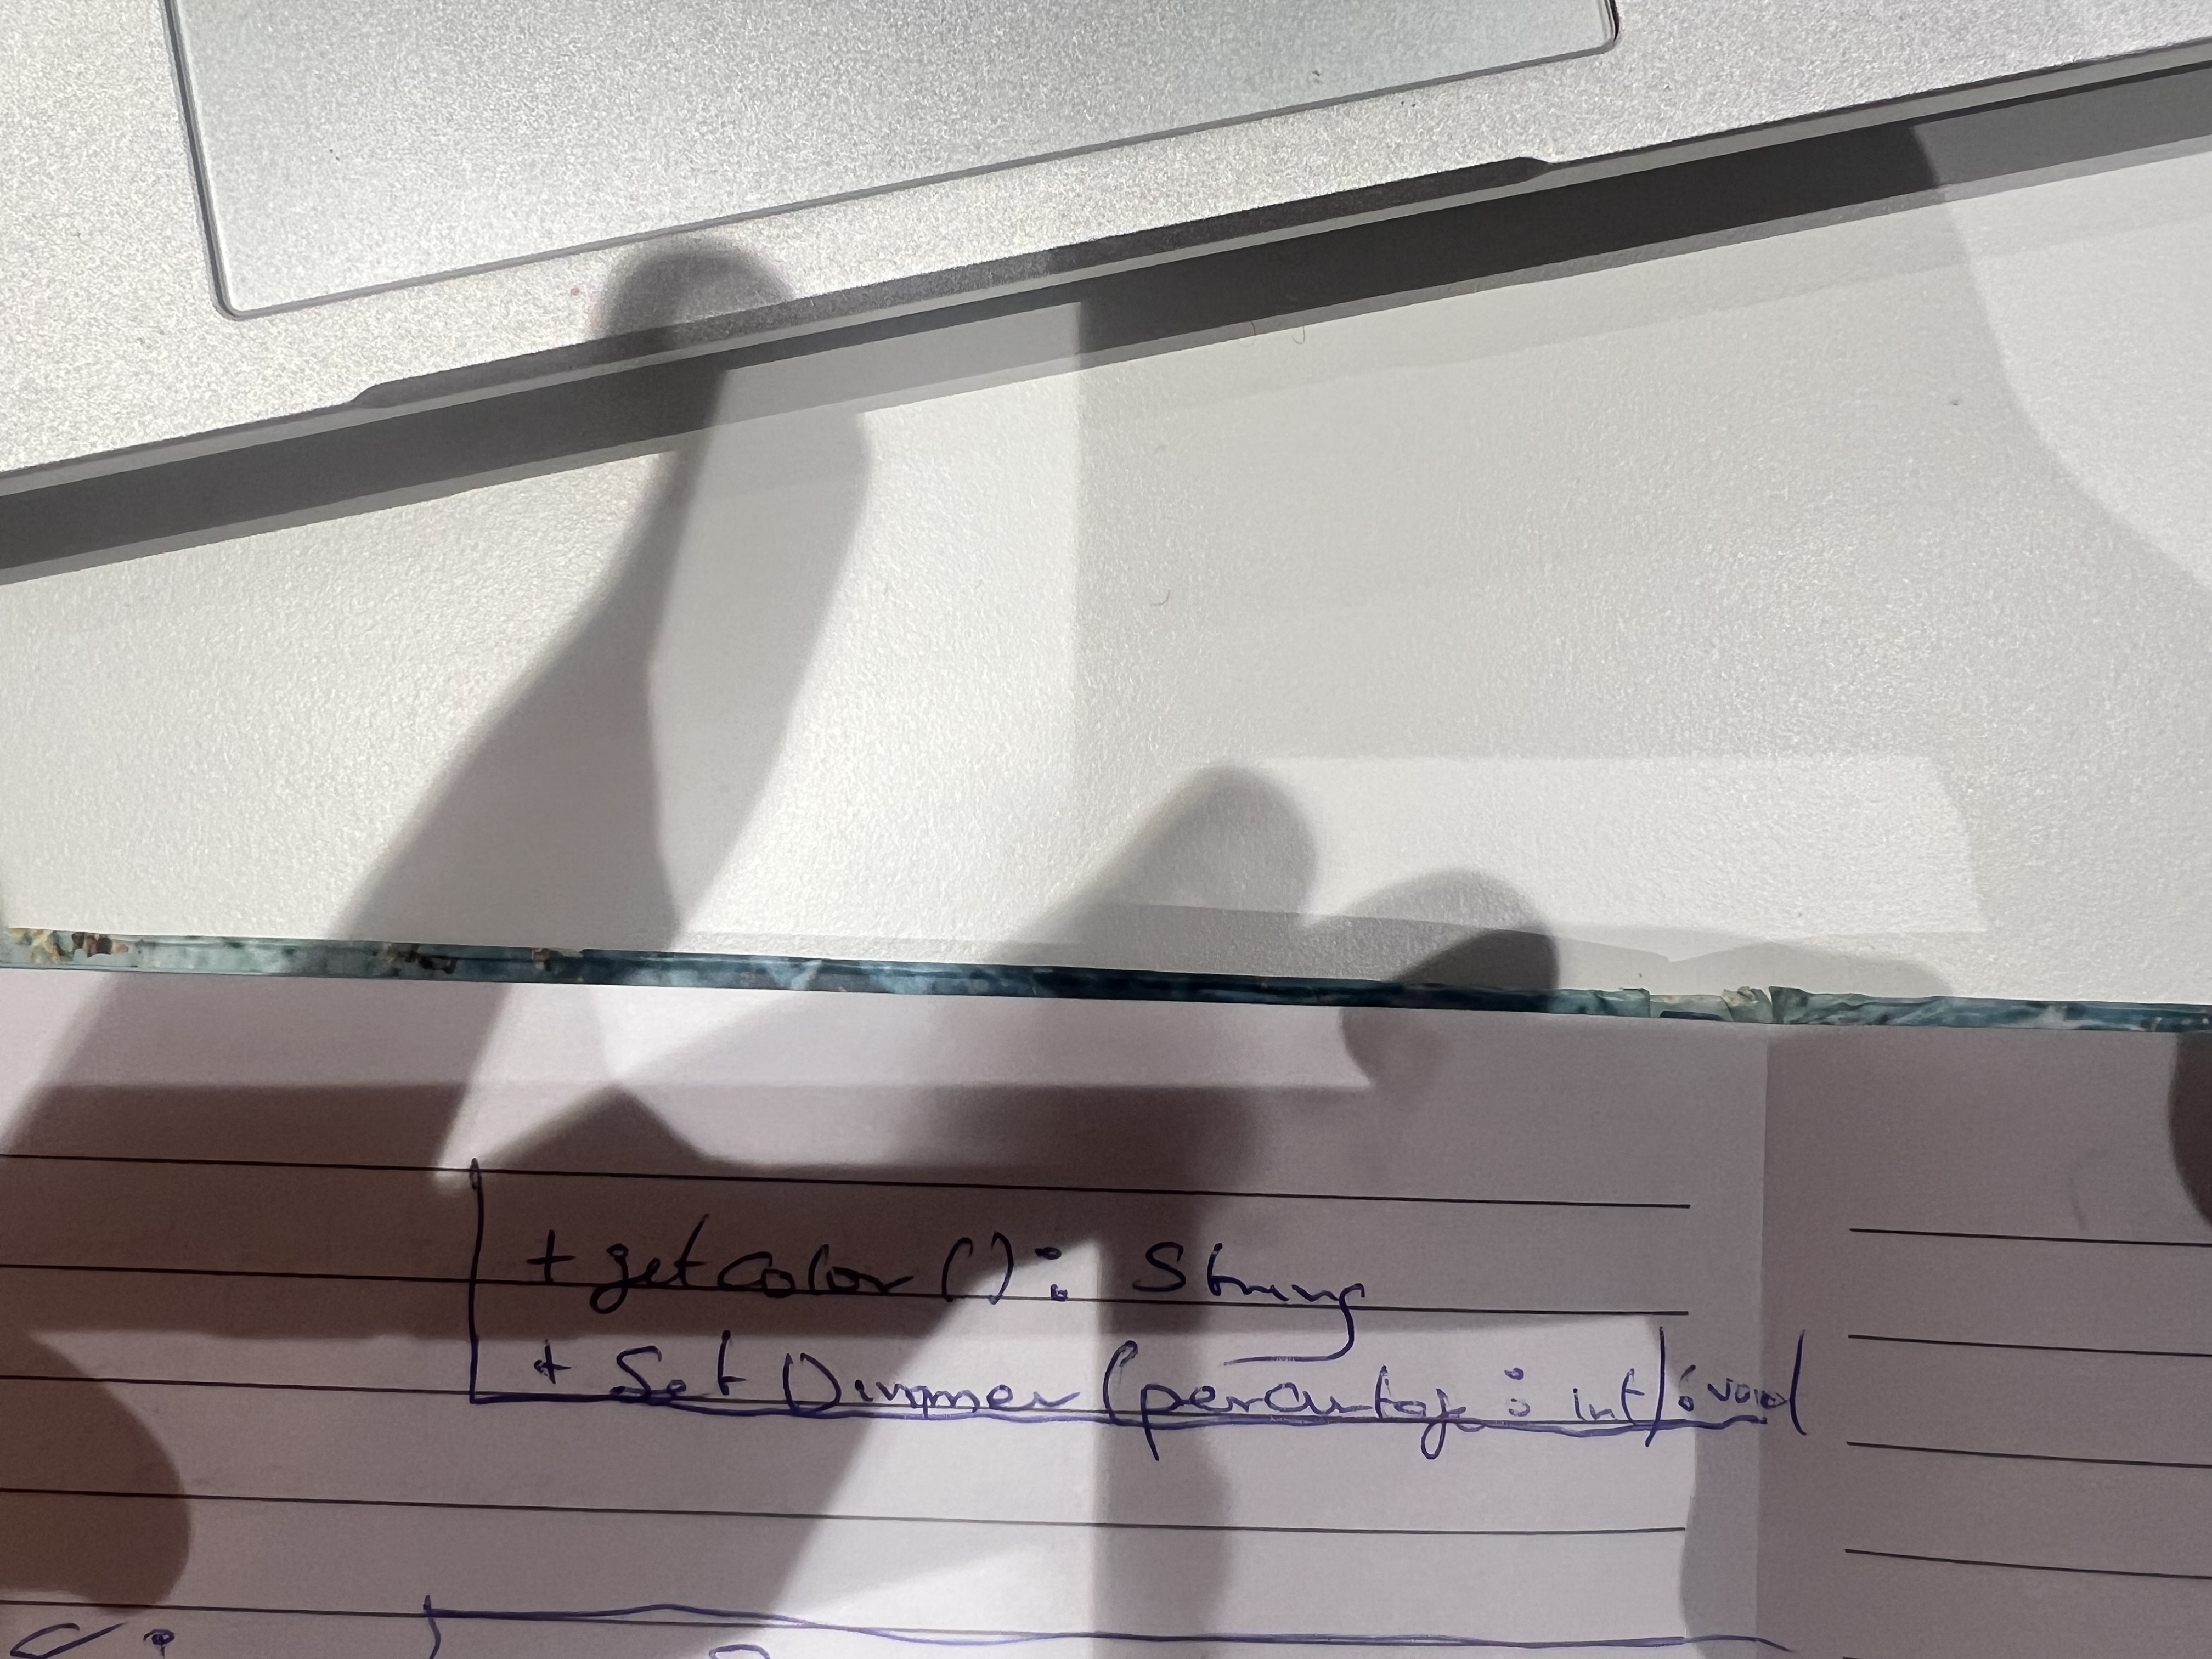 + getColor () : String
+ Set Dimmer (percentage : int) : void